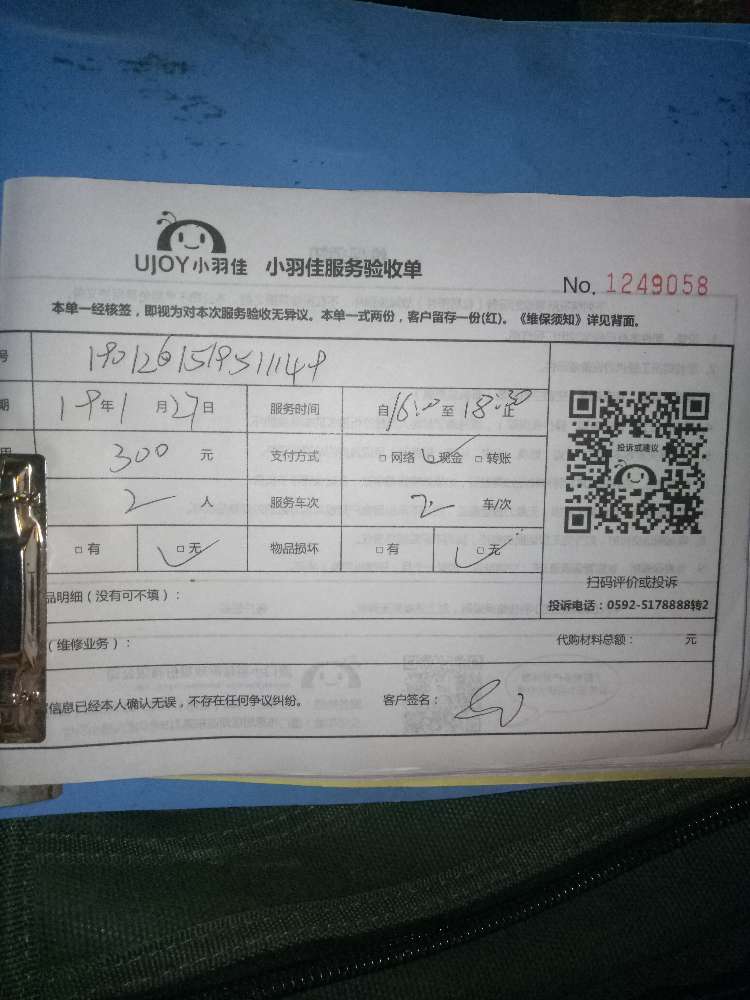 UJOY小羽佳 小羽佳服务验收单
No. 1249058
本单一经核签，即视为对本次服务验收无异议。本单一式两份，客户留存一份(红)。《维保须知》详见背面。
号 190126151951149
期 19年1月27日 服务时间 自16:00至18:30止
用 300元 支付方式 □网络 □现金 □转账
2人 服务车次 2车/次
□有 □无 物品损坏 □有 □无
投诉或建议
扫码评价或投诉
投诉电话：0592-5178888转2
品明细（没有可不填）：
（维修业务）： 代购材料总额： 元
信息已经本人确认无误，不存在任何争议纠纷。 客户签名：